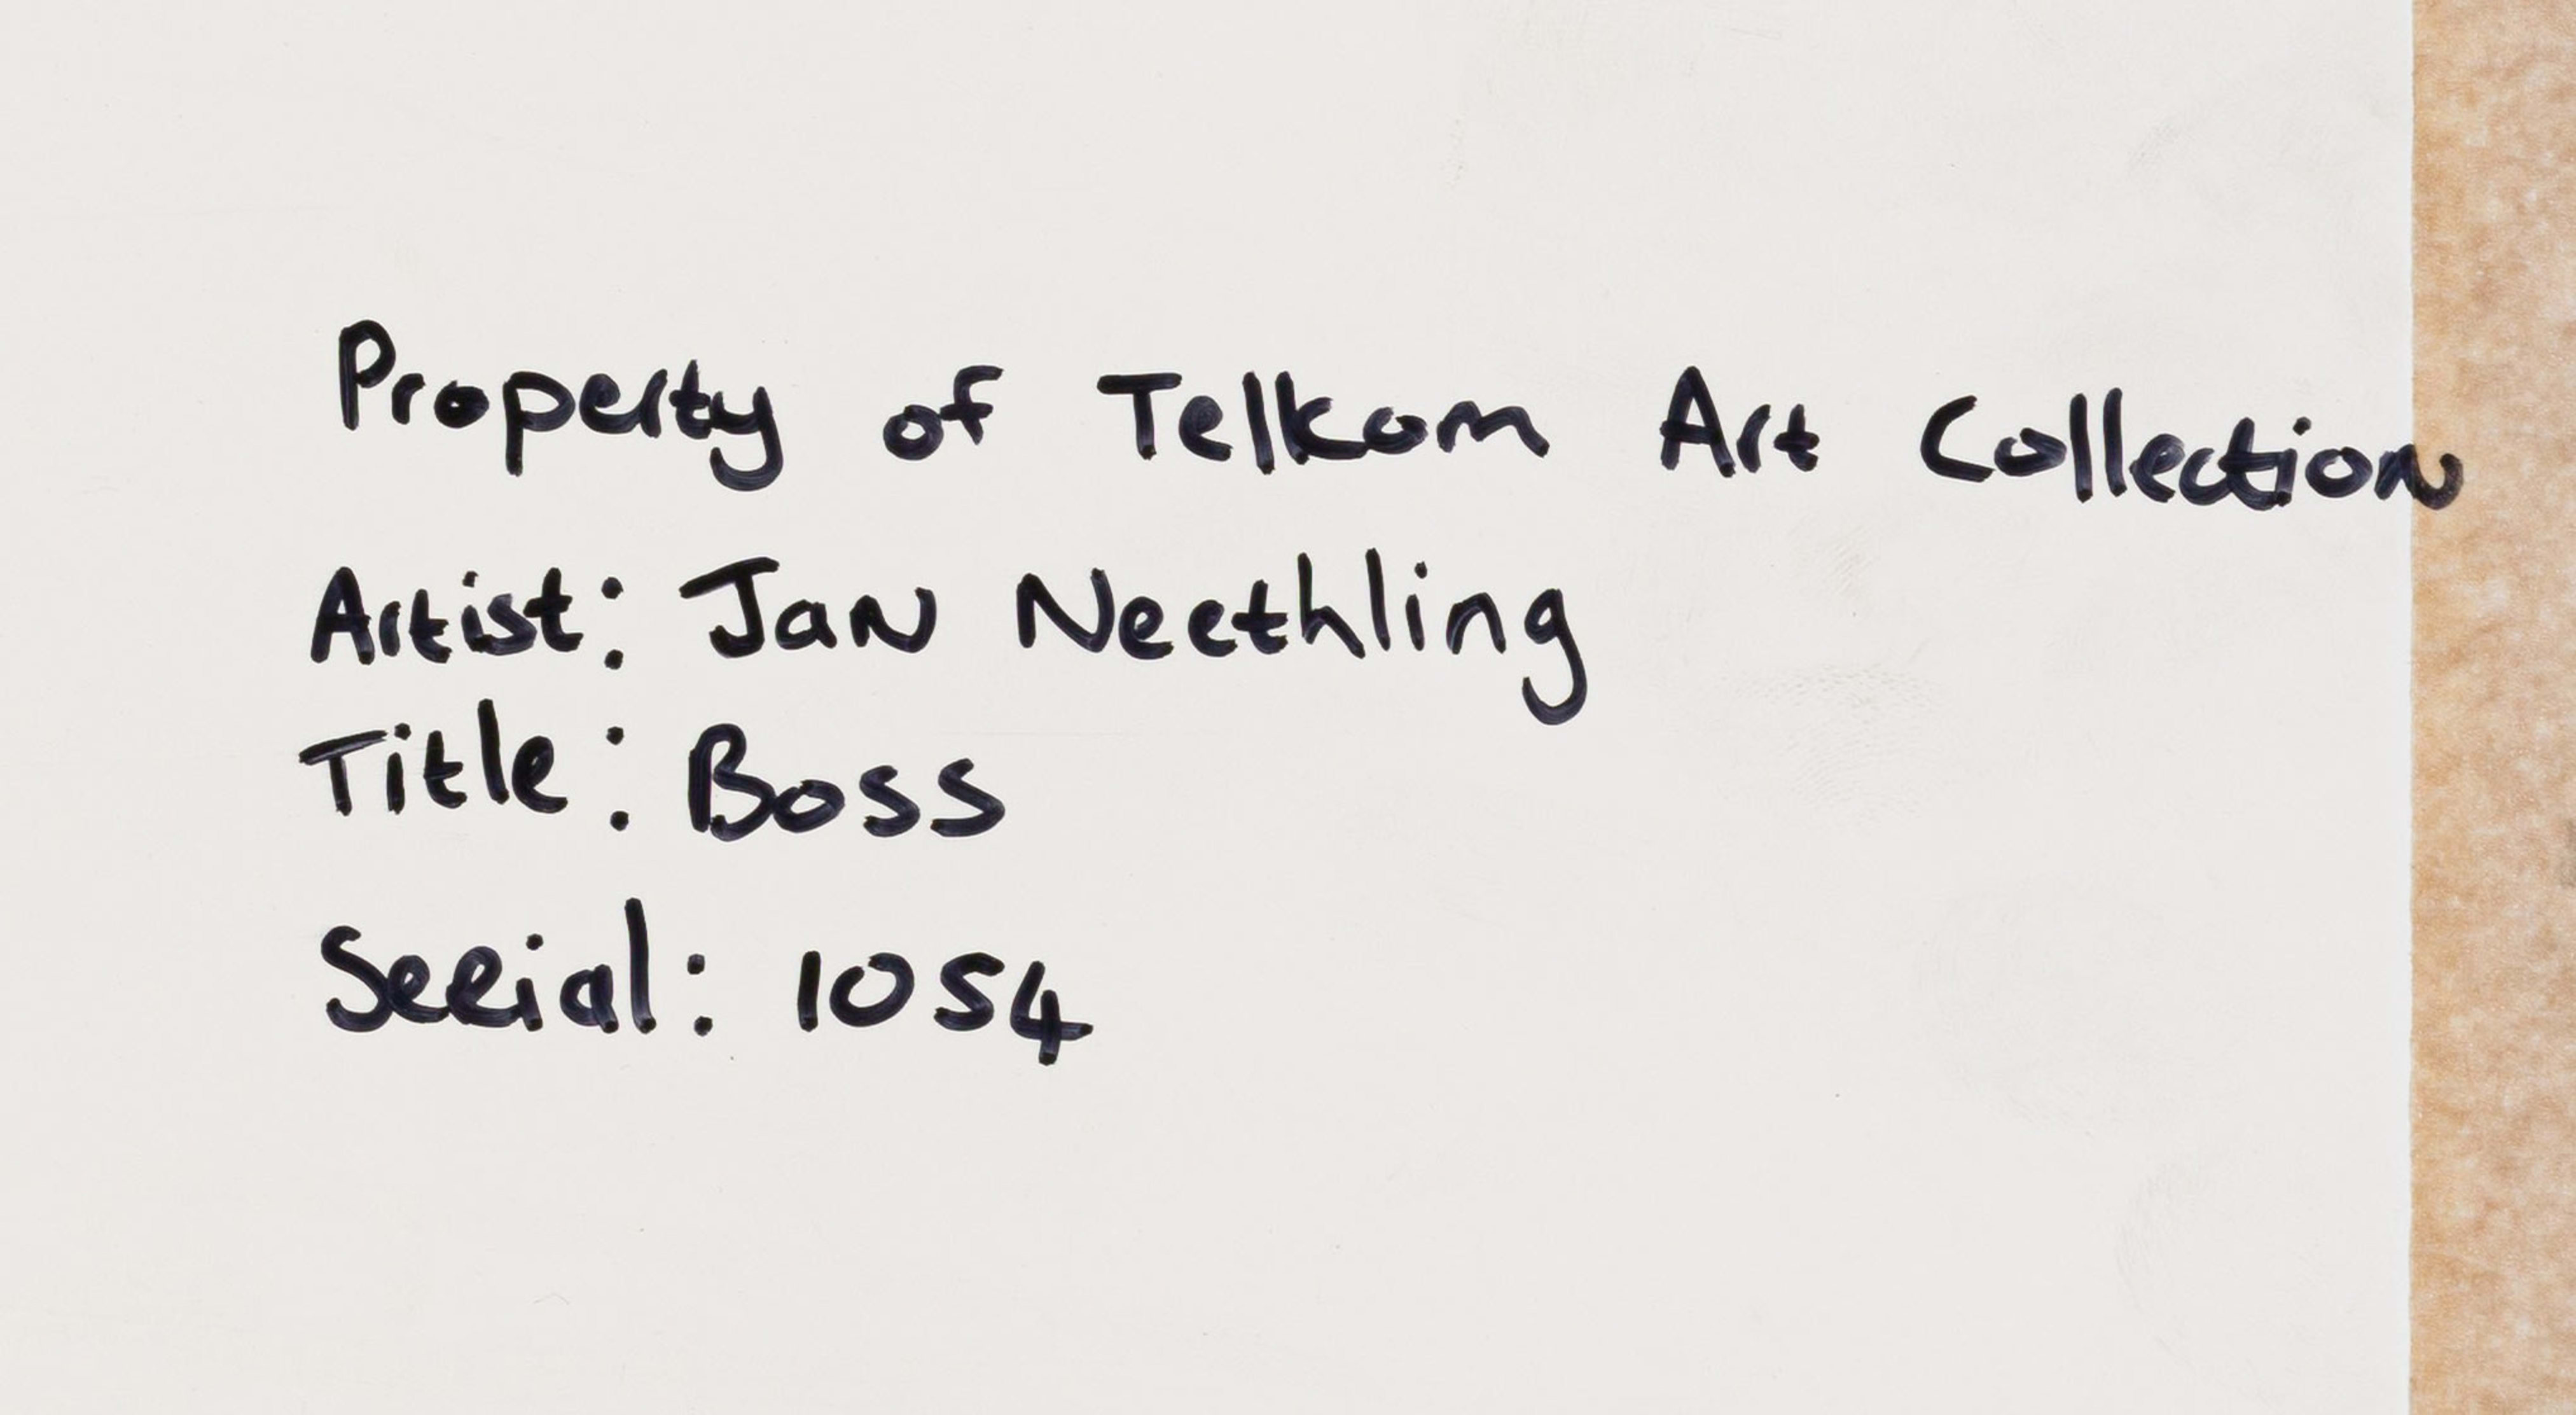 Property of Telkom Art Collection
Artist: Jan Neethling
Title: Boss
Serial: 1054